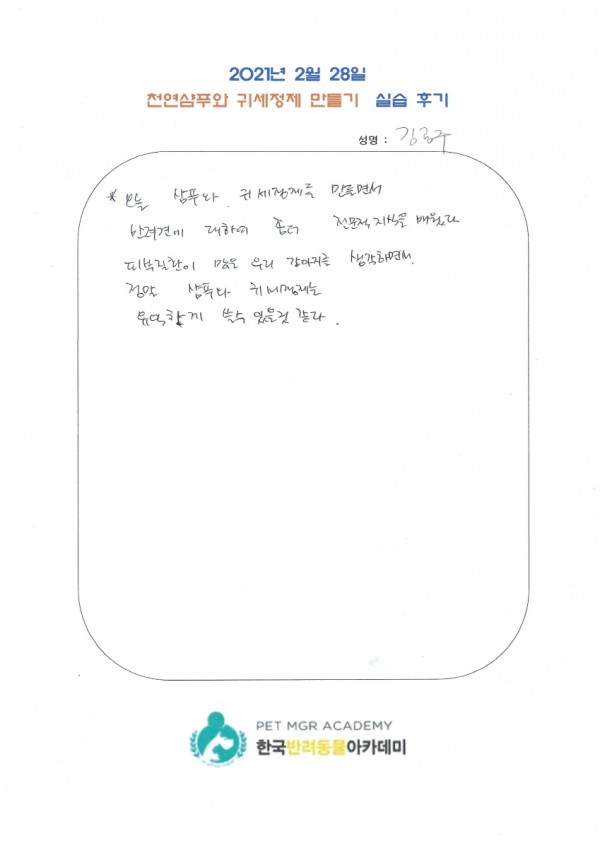 2021년 2월 28일
천연샴푸와 귀세정제 만들기 실습 후기
성명 : 김공주
* 오늘 샴푸와. 귀세정제를 만들면서
반려견에 대하여 좀더 전문적 지식을 배웠다
피부질환이 많은 우리 강아지를 생각하면서.
정말 샴푸와 귀세정제는
유익하게 쓸수 있을것 같다.
PET MGR ACADEMY
한국반려동물아카데미